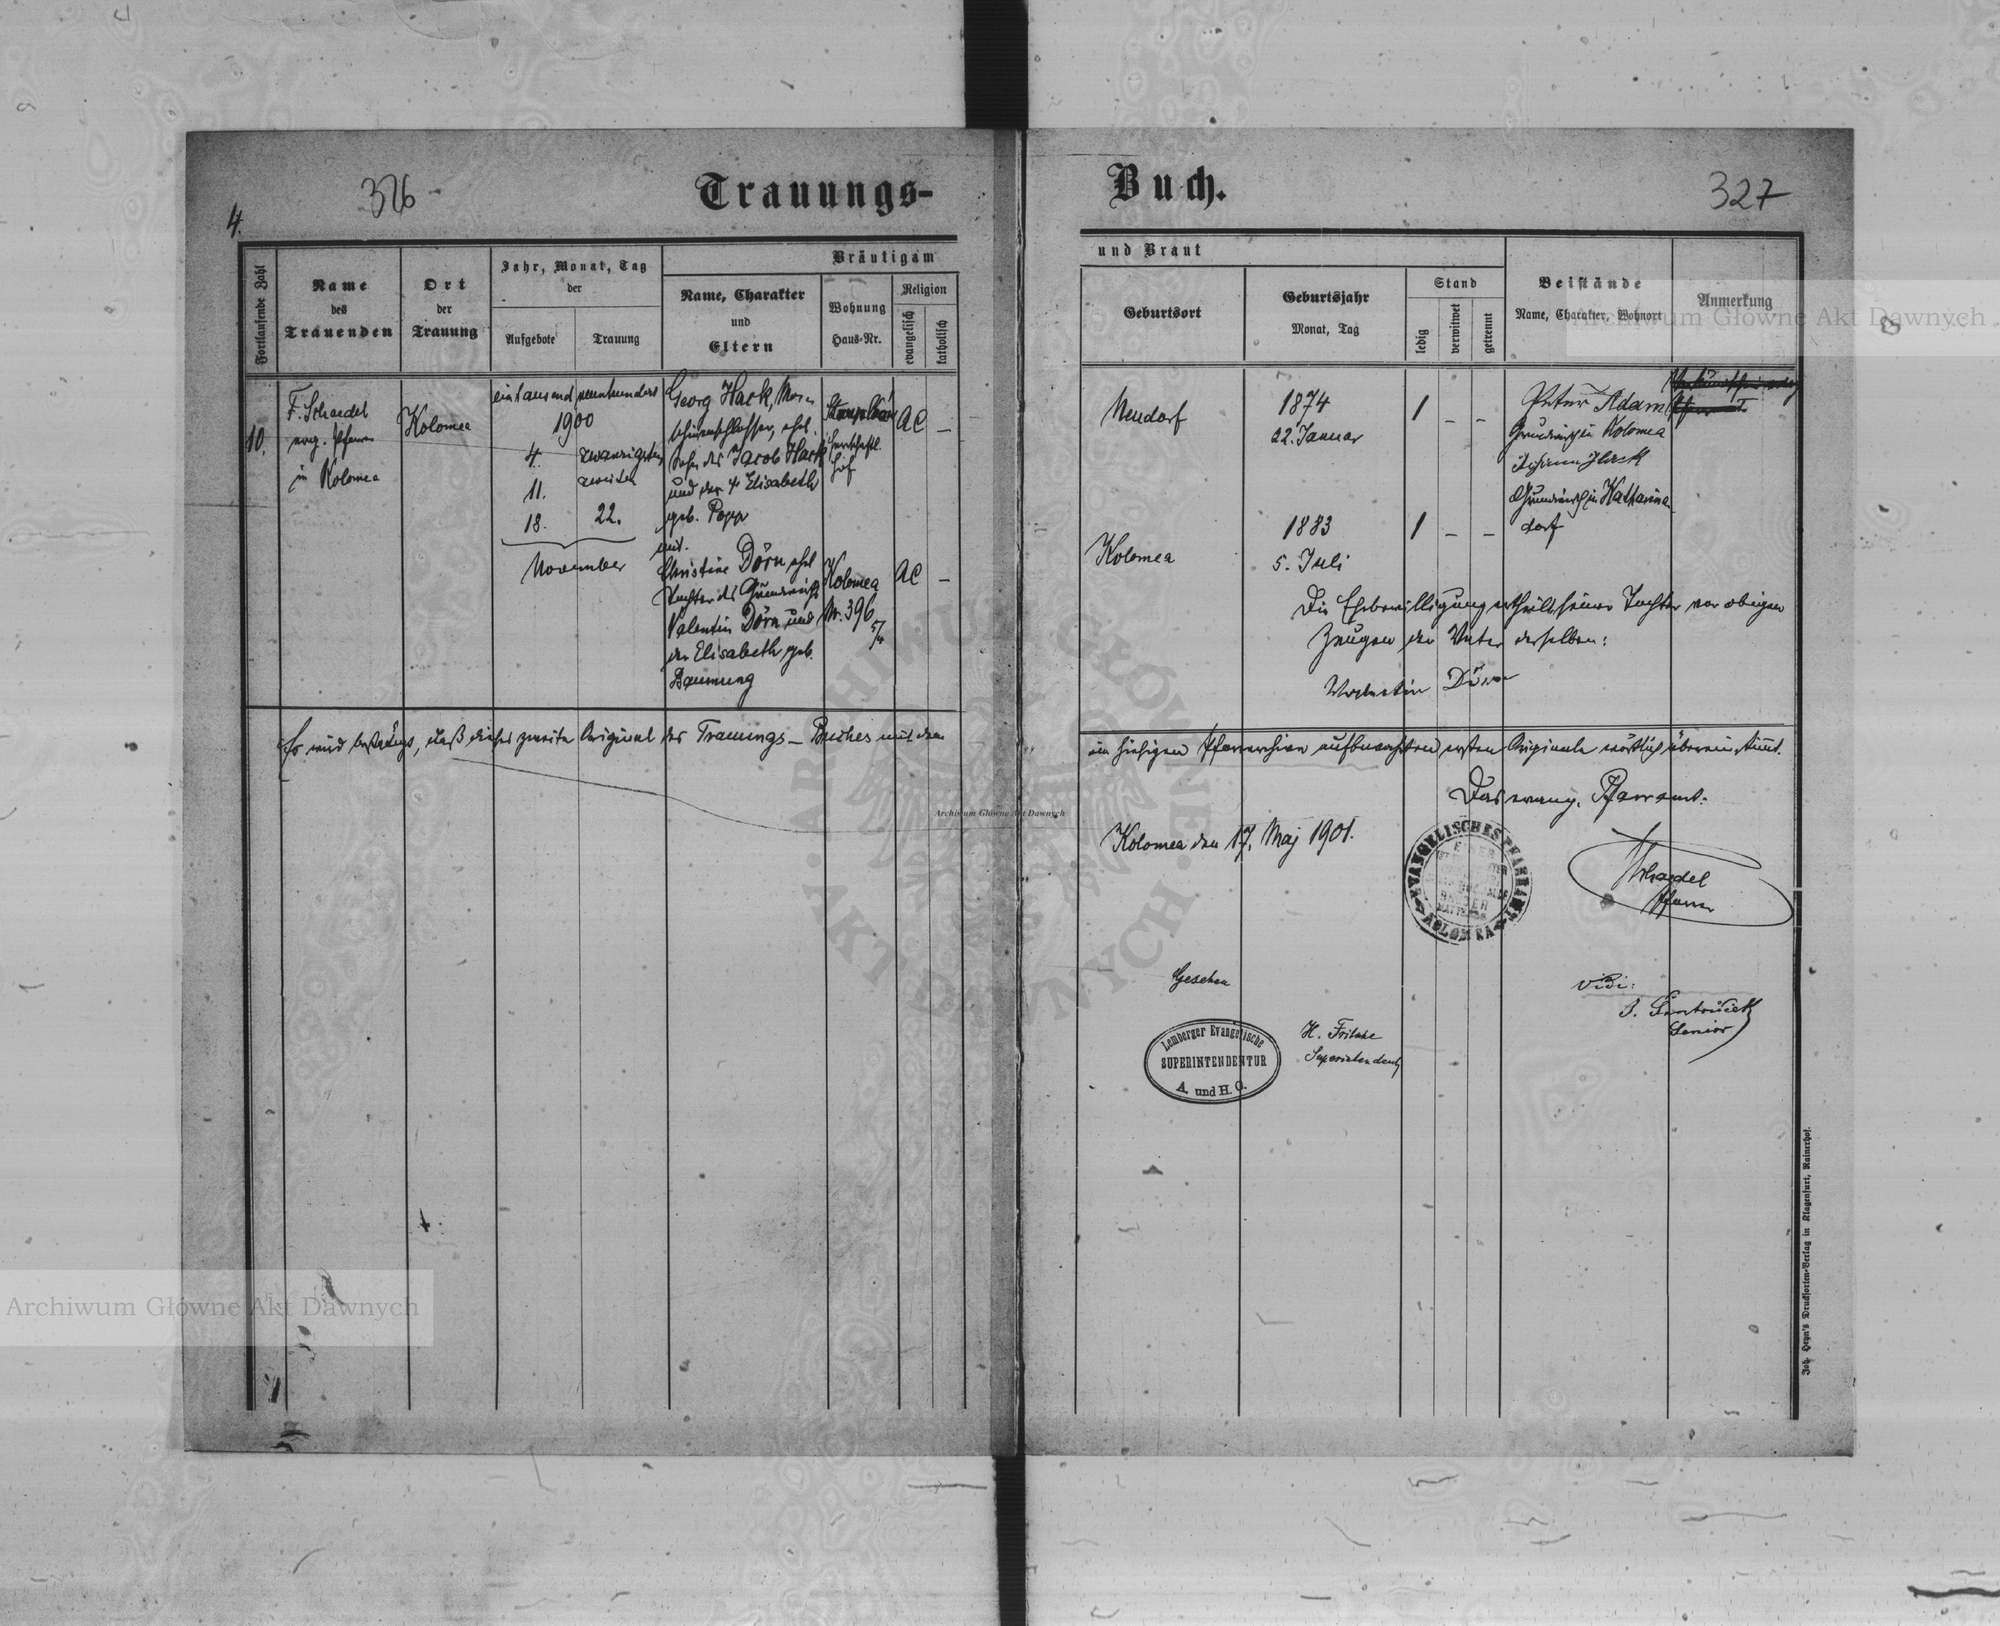 376
4.
Trauungs-
Buch.
327
Fortlaufende Zahl
Name
des
Trauenden
Ort
der
Trauung
Jahr, Monat, Tag
der
Aufgebote
Trauung
Bräutigam
Name, Charakter
und
Eltern
Wohnung
Haus-Nr.
Religion
evangelisch
katholisch
und Braut
Geburtsort
Geburtsjahr
Monat, Tag
Stand
ledig
verwitwet
getrennt
Beistände
Name, Charakter, Wohnort
Anmerkung
10.
F. Schaedel
evg. Pfarrer
in Kolomea
Kolomea
eintausend neunhundert
1900
4.
11.
18.
zwanzigsten
zweiten
22.
November
Georg Hack, Ma-
schinenschlosser, ehel.
Sohn des Jacob Hack
und der † Elisabeth
geb. Popp
mit
Christine Dörn, ehel
Tochter des Grundwirth
Valentin Dörn und
der Elisabeth geb.
herrschaftl.
Hof
AC
–
Kolomea
Nr. 396
AC
–
Neudorf
1874
22. Januar
1 – –
Peter Adam
Grundwirth in Kolomea
Johann Hack
Grundwirth in Katharina
dorf
Kolomea
1883
5. Juli
1 – –
Die Ehebewilligung ertheilt seiner Tochter vor obigen
Zeugen der Vater derselben:
Valentin Dörn
Es wird bestätigt, daß dieses zweite Original des Trauungs-Buches mit dem
im hiesigen Pfarrarchive aufbewahrten ersten Originale wörtlich übereinstimmt.
Das evang. Pfarramt.
Kolomea den 17. Maj 1901.
EVANGELISCHES PFARRAMT
KOLOMEA
Schaedel
Pfarrer
Gesehen
Lemberger Evangelische
SUPERINTENDENTUR
A. und H. C.
H. Fritsche
Superintendent
Vidi:
Senior
Joh. Heyn's Drucksorten-Verlag in Klagenfurt, Rainerhof.
Archiwum Główne Akt Dawnych
Archiwum Główne Akt Dawnych
Archiwum Główne Akt Dawnych
ARCHIWUM GŁÓWNE AKT DAWNYCH